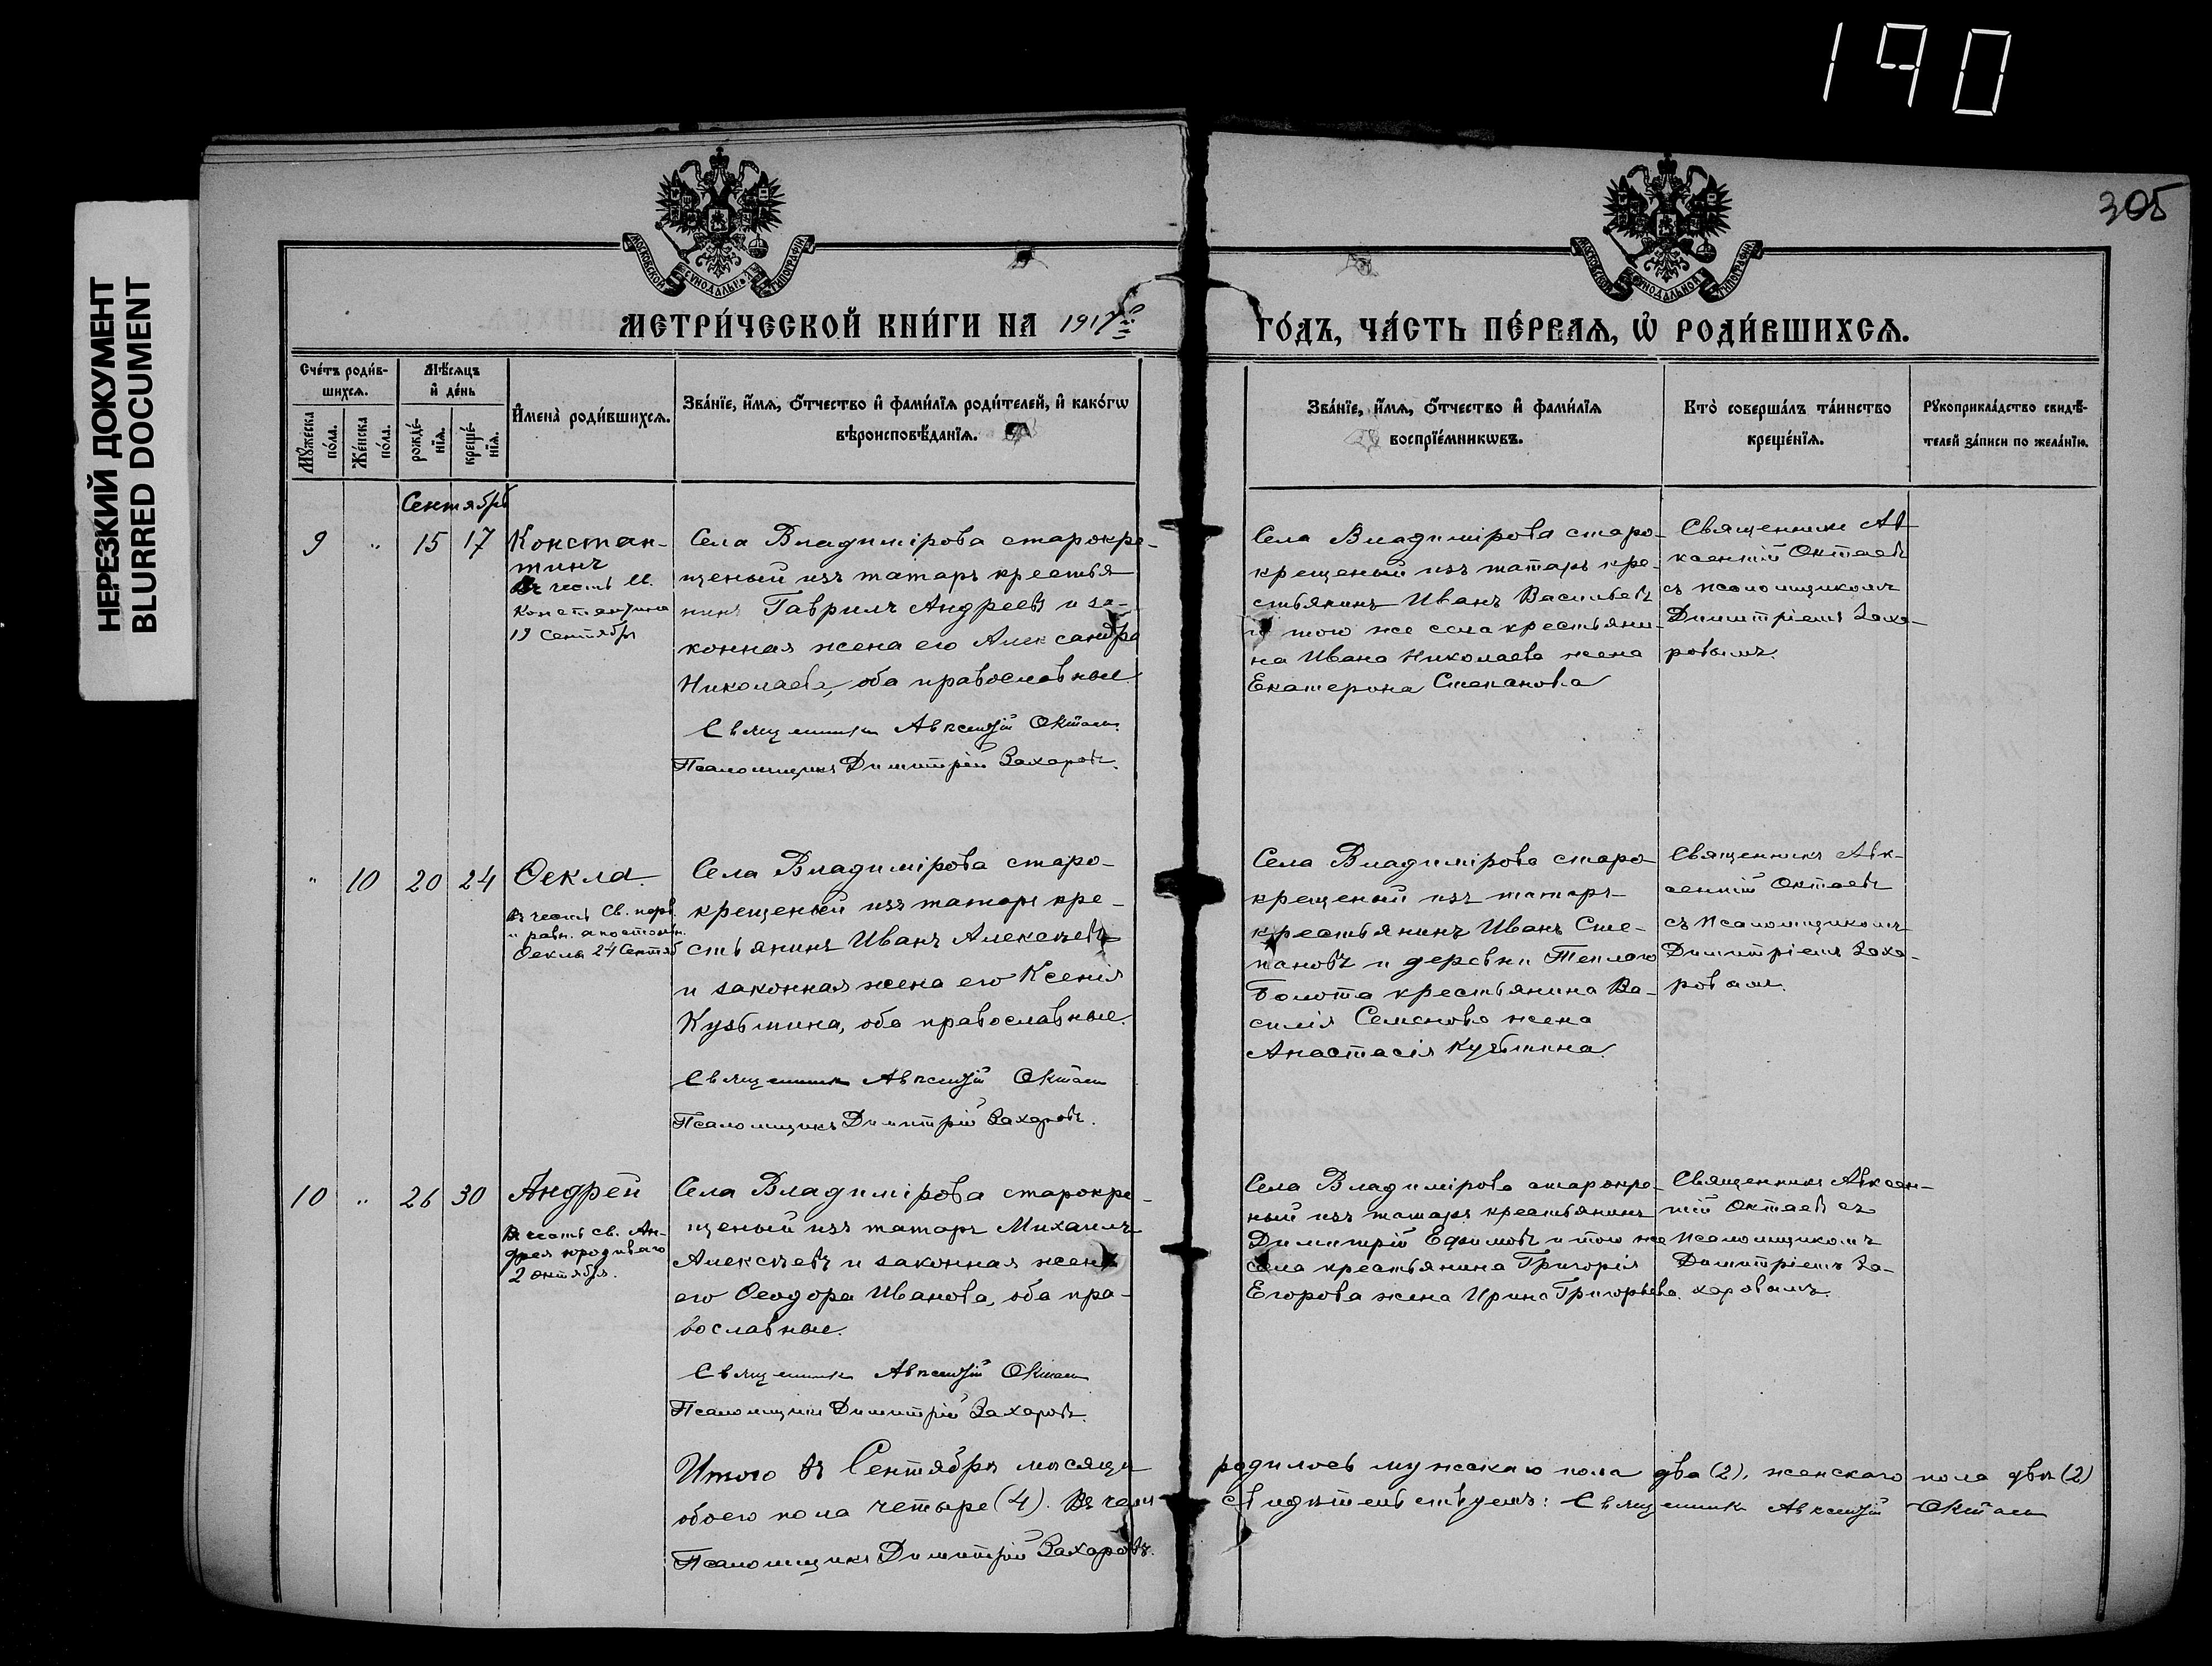 190
305
НЕРЕЗКИЙ ДОКУМЕНТ
BLURRED DOCUMENT
МОСКОВСКОЙ СѴНОДАЛЬНОЙ ТИПОГРАФІИ
МОСКОВСКОЙ СѴНОДАЛЬНОЙ ТИПОГРАФІИ
МЕТРИ́ЧЕСКОЙ КНИ́ГИ НА 1917й
ГО́ДЪ, ЧА́СТЬ ПЕ́РВАѦ, Ѡ҆ РОДИ́ВШИХСѦ.
Сче́тъ роди́в-
шихсѧ.
Мꙋ́жеска по́ла.
Же́нска по́ла.
Мѣ́сѧцъ
и҆ де́нь
рожде́-
нїѧ.
креще́-
нїѧ.
И҆мена̀ роди́вшихсѧ.
Зва́нїе, и҆́мѧ, ѻ҆́тчество и҆ фами́лїѧ роди́телей, и҆ како́гѡ
вѣроисповѣ́данїѧ.
Зва́нїе, и҆́мѧ, ѻ҆́тчество и҆ фами́лїѧ
воспрїе́мникѡвъ.
Кто̀ соверша́лъ та́инство
креще́нїѧ.
Рꙋкоприкла́дство свидѣ́-
телей за́писи по жела́нїю.
Сентябрь
9 " 15 17
Констан-
тинъ
Въ честь м.
Константина
19 Сентябр.
Села Владимірова старокре-
щеный изъ татаръ крестья
нинъ Гавріилъ Андреевъ и за-
конная жена его Александра
Николаева, оба православные.
Священникъ Авксентій Октаевъ
Псаломщикъ Димитрій Захаровъ.
Села Владимірова старо-
крещеный изъ татаръ кре-
стьянинъ Иванъ Васильевъ
и того же села крестьяни-
на Ивана Николаева жена
Екатерина Степанова
Священникъ Ав
ксентій Октаевъ
съ псаломщикомъ
Димитріемъ Заха-
ровымъ.
" 10 20 24
Ѳекла.
Въ честь Св. перв.
и равн. апостолам.
Ѳекла 24 Сентяб
Села Владимірова старо-
крещеный изъ татаръ кре-
стьянинъ Иванъ Алексѣевъ
и законная жена его Ксенія
Кузьмина, оба православные.
Священникъ Авксентій Октаевъ
Псаломщикъ Димитрій Захаровъ.
Села Владимірова старо
крещеный изъ татаръ
крестьянинъ Иванъ Сте-
пановъ и деревни Теплаго
Болота крестьянина Ва-
силія Семенова жена
Анастасія Кузьмина.
Священникъ Авк-
сентій Октаевъ
съ псаломщикомъ
Димитріемъ Заха-
ровымъ.
10 " 26 30
Андрей
Въ честь св. Ан-
дрея юродиваго
2 октября.
Села Владимірова старокре-
щеный изъ татаръ Михаилъ
Алексѣевъ и законная жена
его Ѳеодора Иванова, оба пра-
вославные.
Священникъ Авксентій Октаевъ
Псаломщикъ Димитрій Захаровъ.
Села Владимірова старокре-
ный изъ татаръ крестьянинъ
Димитрій Ефимовъ и того же
села крестьянина Григорія
Егорова жена Ирина Григорьева.
Священникъ Авксен-
тій Октаевъ съ
псаломщикомъ
Димитріемъ За-
харовымъ.
Итого въ Сентябрѣ мѣсяцѣ родилось мужскаго пола два (2), женскаго пола двѣ (2)
обоего пола четыре (4). Въ чемъ свидѣтельствуемъ: Священникъ Авксентій Октаевъ
Псаломщикъ Димитрій Захаровъ.